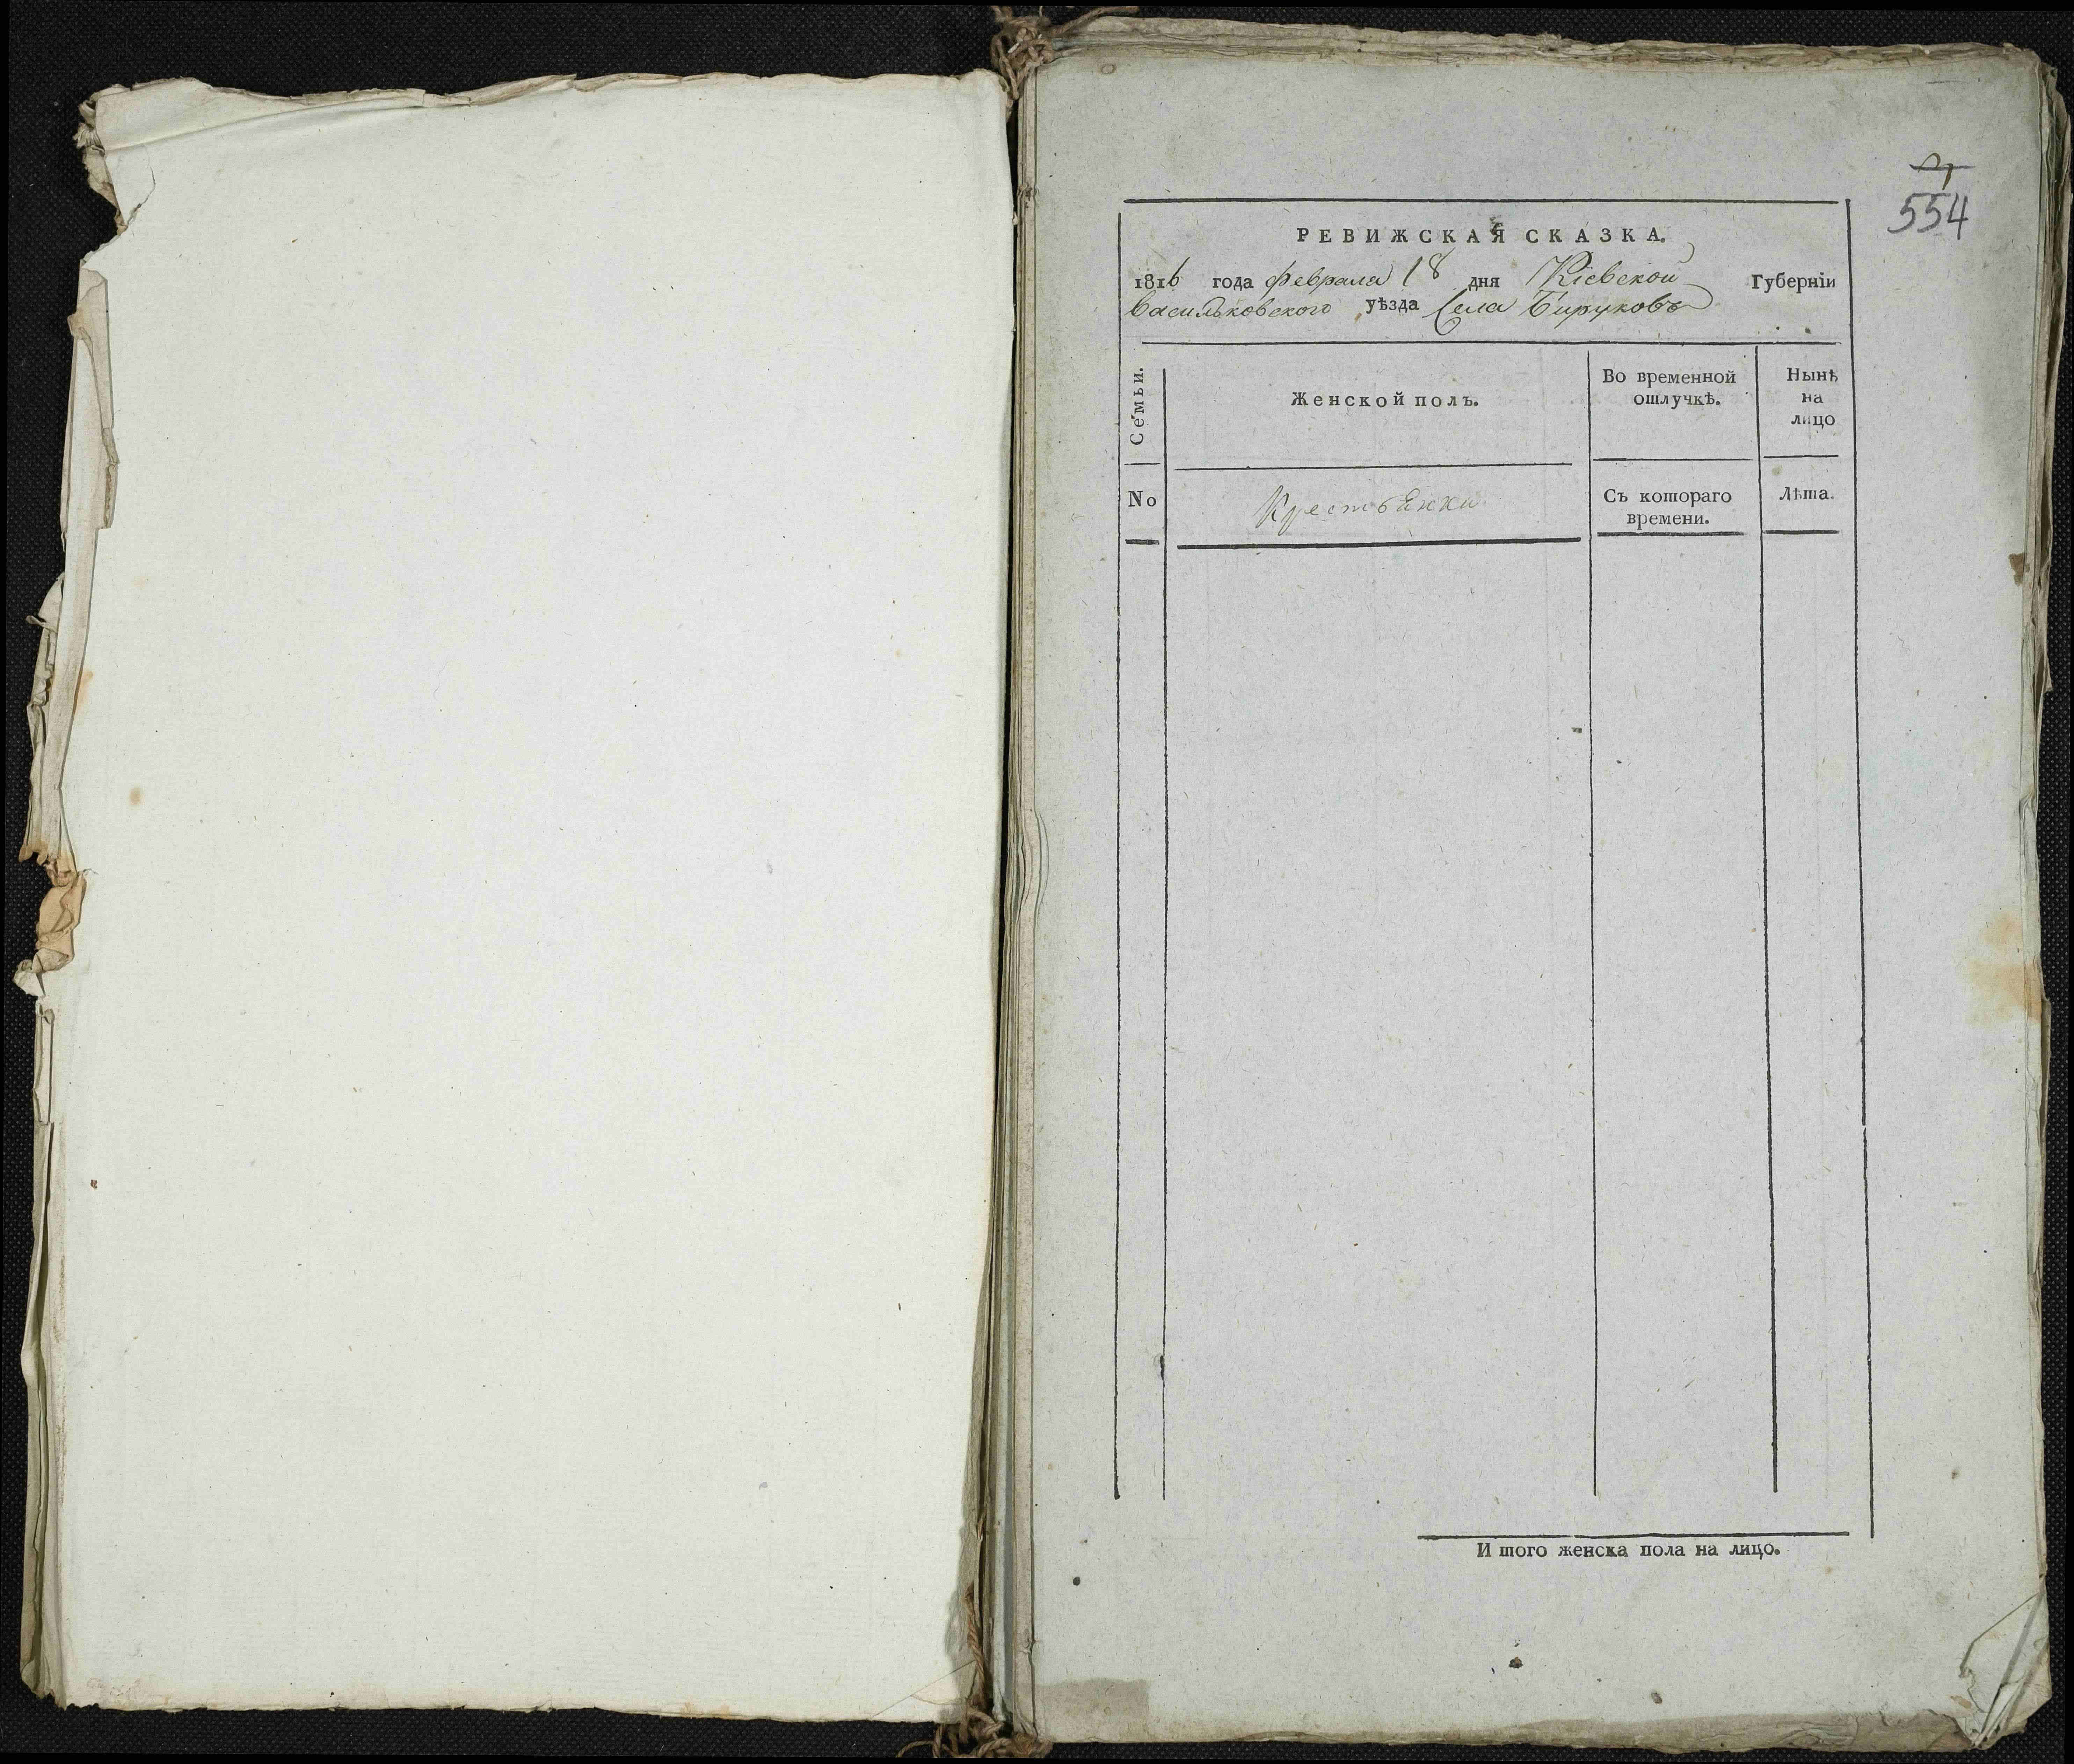 554
РЕВИЖСКАЯ СКАЗКА.
1816 года февраля 18 дня Кіевской Губерніи
Васильковского уѣзда Села Бируковъ
Семьи.
Женской полъ.
Во временной отлучкѣ.
Нынѣ на лицо
No
Крестьянки
Съ котораго времени.
Лѣта.
И того женска пола на лицо.